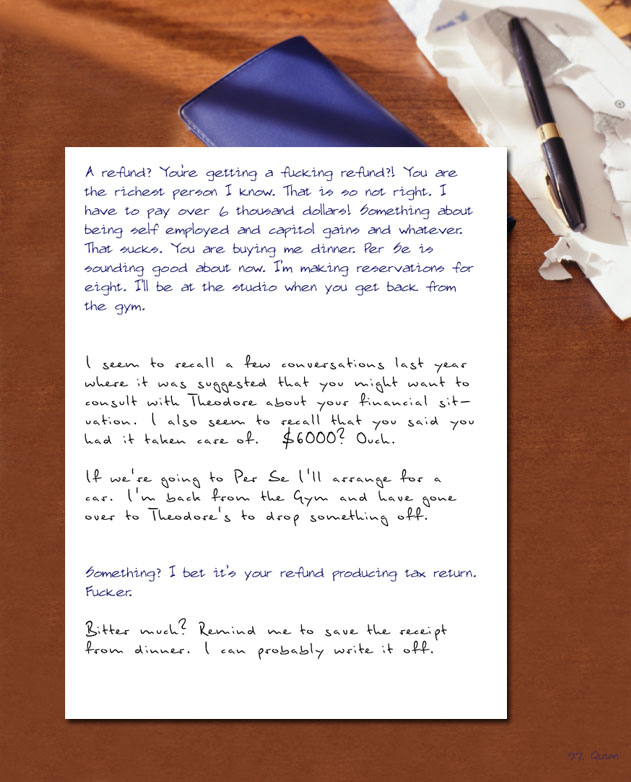 A refund? You're getting a fucking refund?! You are
the richest person I know. That is so not right. I
have to pay over 6 thousand dollars! Something about
being self employed and capitol gains and whatever.
That sucks. You are buying me dinner. Per Se is
sounding good about now. I'm making reservations for
eight. I'll be at the studio when you get back from
the gym.
I seem to recall a few conversations last year
where it was suggested that you might want to
consult with Theodore about your financial sit-
uation. I also seem to recall that you said you
had it taken care of. $6000? Ouch.
If we're going to Per Se I'll arrange for a
car. I'm back from the Gym and have gone
over to Theodore's to drop something off.
Something? I bet it's your refund producing tax return.
Fucker.
Bitter much? Remind me to save the receipt
from dinner. I can probably write it off.